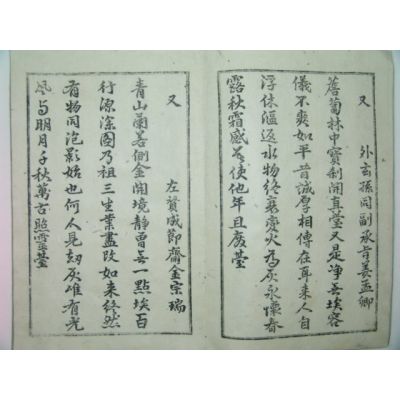 又 外玄孫同副承旨姜孟卿
薝蔔林中寶刹開真臺又是净無埃容
儀不爽如平昔誠厚相傳在耳來人自
浮休漚返水物終衰變火為灰永懷春
露秋霜感莫使他年且廢臺
又 左贊成節齋金宗瑞
青山蘭若側金開境静曾無一點埃百
行源深圖乃祖三生業盡改如来終然
有物同泡影姑也何人見劫灰唯有光
風与明月千秋萬古照靈臺